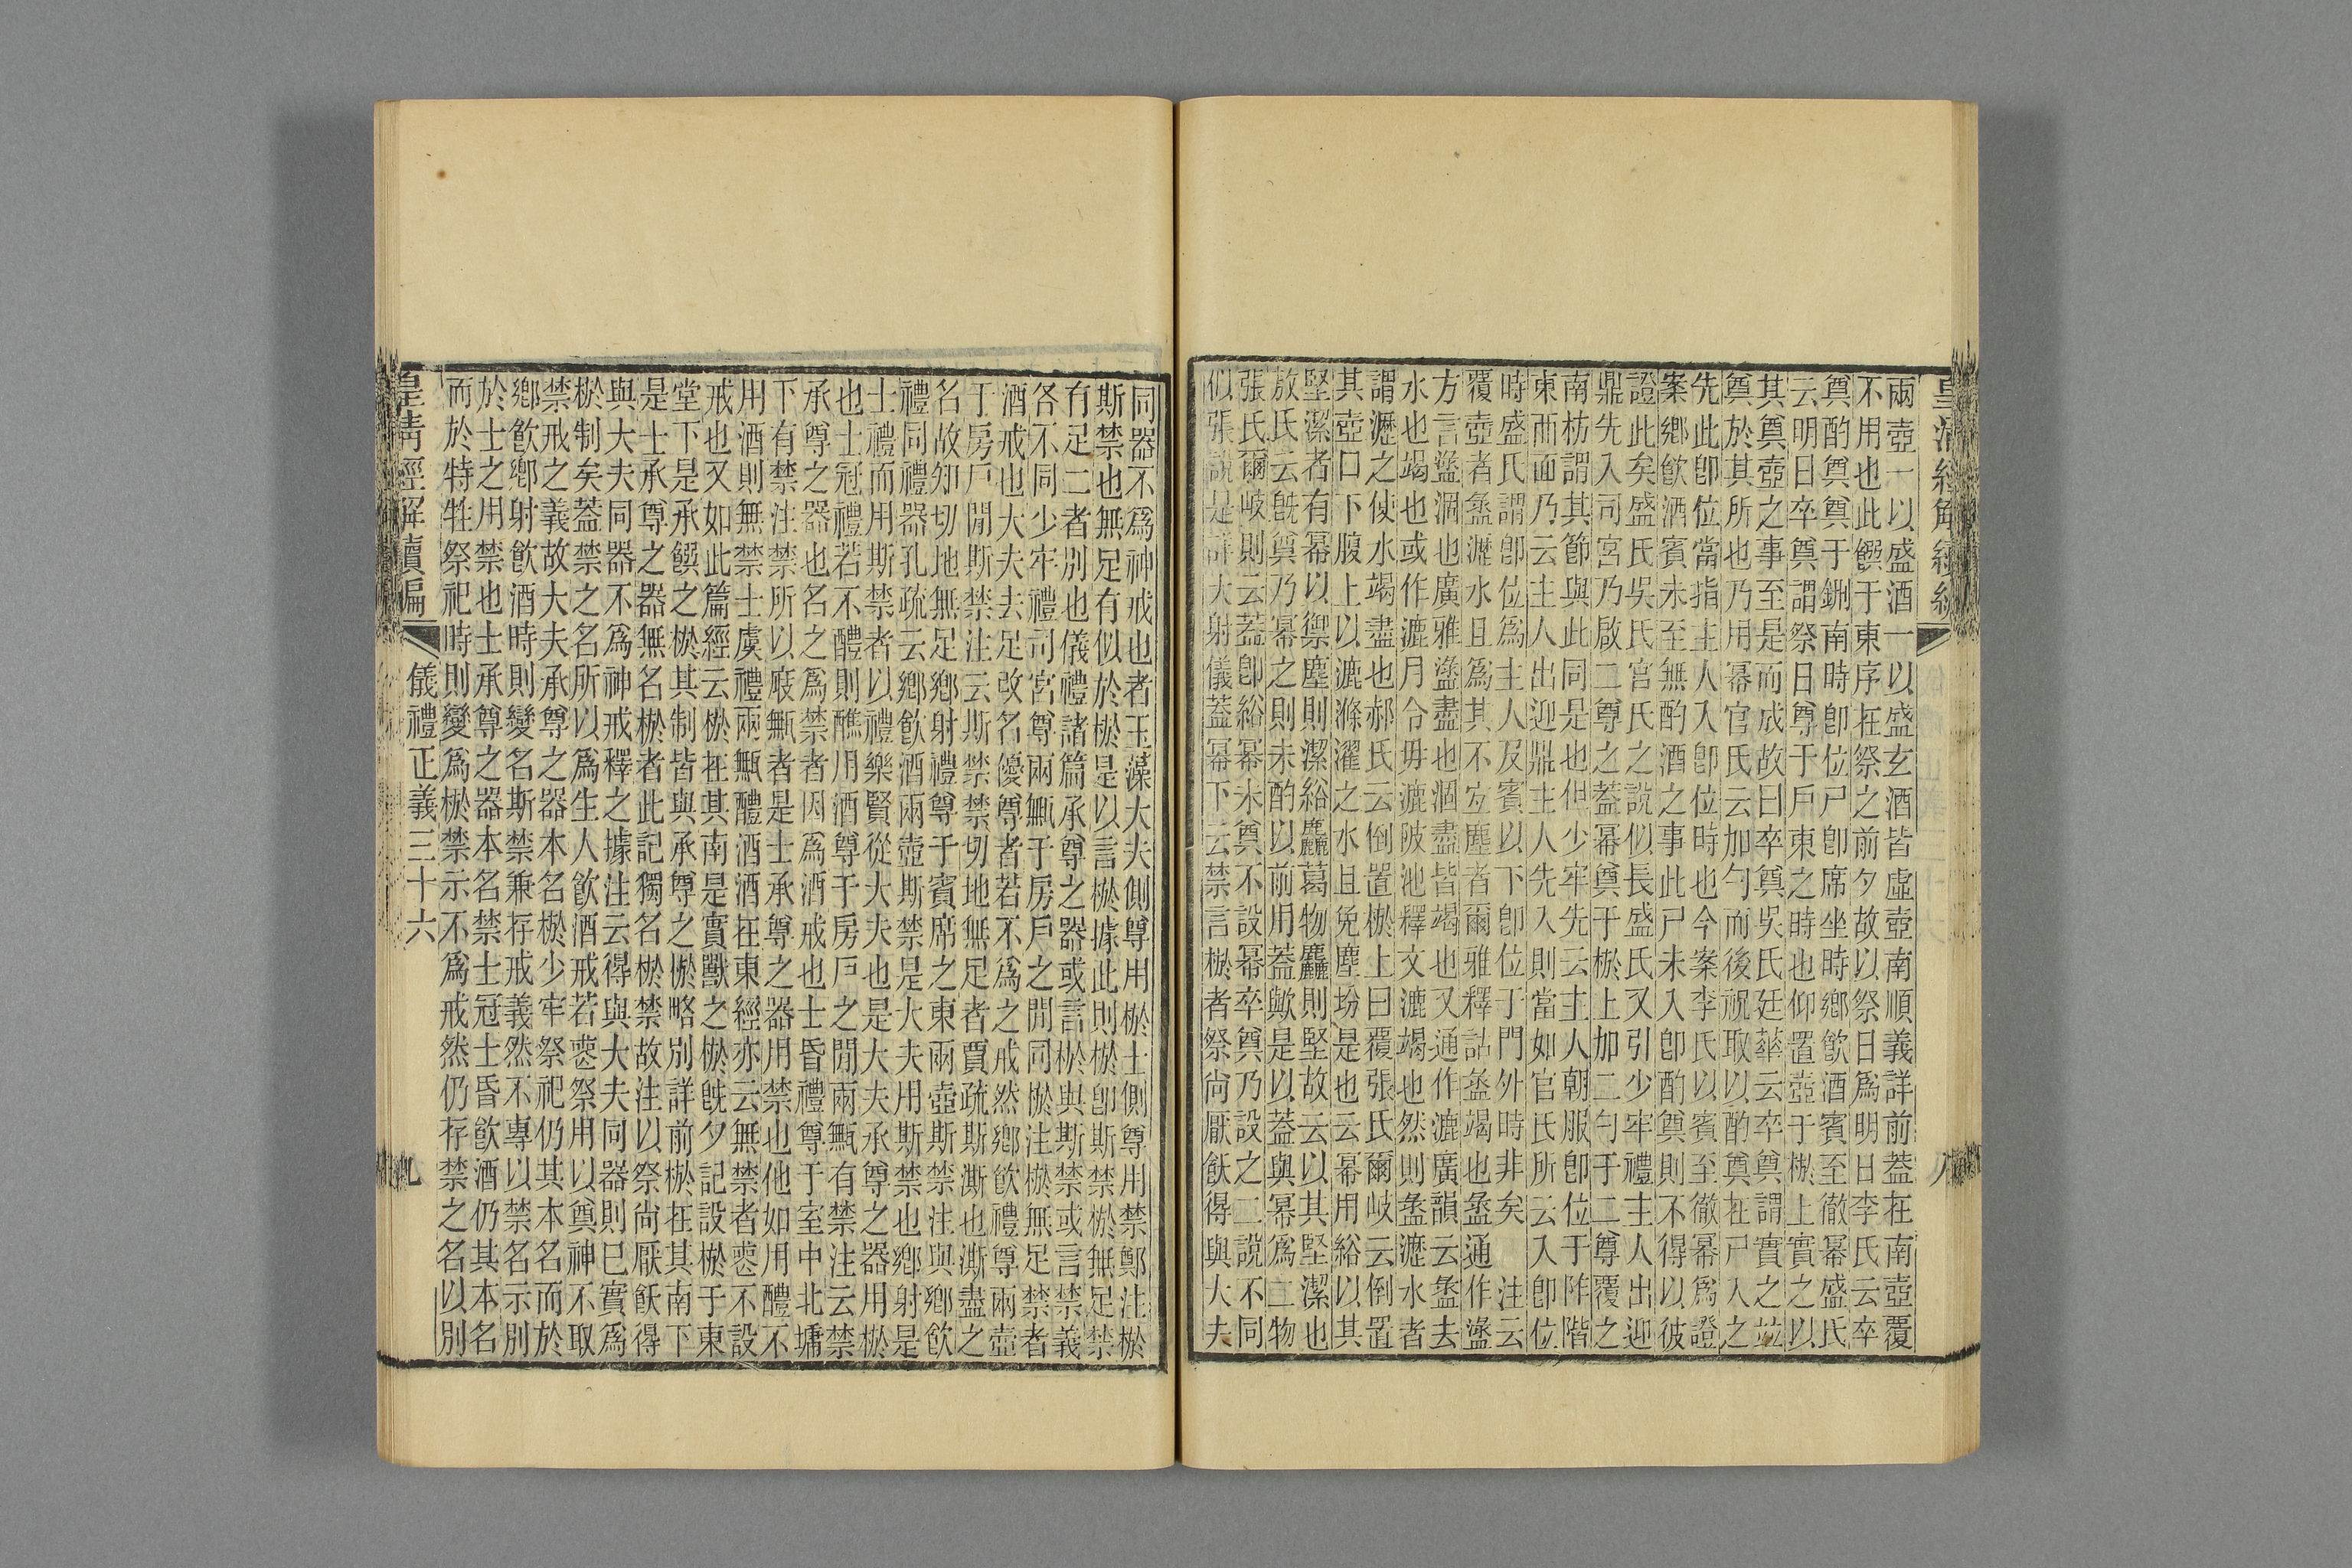 兩壺一以盛酒一以盛玄酒皆虛壺南順義詳前蓋在南壺覆
不用也此饌于東序在祭之前夕故以祭日爲明日李氏云卒
奠酌奠奠于鉶南時卽位尸卽席坐時鄉飮酒賓至徹冪盛氏
云明日卒奠謂祭日尊于戶東之時也仰置壺于棜上實之以
其奠壺之事至是而成故曰卒奠吳氏廷華云卒奠謂實之竝
奠於其所也乃用冪官氏云加勺而後祝取以酌奠在尸入之
先此卽位當指主人入卽位時也今案李氏以賓至徹冪爲證
案鄉飮酒賓未至無酌酒之事此尸未入卽酌奠則不得以彼
證此矣盛氏吳氏宮氏之說似長盛氏又引少牢禮主人出迎
鼎先入司宮乃啟二尊之蓋冪奠于棜上加二勺于二尊覆之
南枋謂其節與此同是也但少牢先云主人朝服卽位于阼階
東西面乃云主人出迎鼎主人先入則當如官氏所云入卽位
時盛氏謂卽位爲主人及賓以下卽位于門外時非矣　注云
覆壺者盝瀝水且爲其不宜塵者爾雅釋詁盝竭也盝通作盪
方言盪涸也廣雅盪盡也涸盡皆竭也又通作漉廣韻云盝去
水也竭也或作漉月令毋漉陂池釋文漉竭也然則盝瀝水者
謂瀝之使水竭盡也郝氏云倒置棜上曰覆張氏爾岐云倒置
其壺口下腹上以漉滌濯之水且免塵坋是也云冪用綌以其
堅潔者有冪以禦塵則潔綌麤葛物麤則堅故云以其堅潔也
敖氏云旣奠乃冪之則未酌以前用蓋歟是以蓋與冪爲二物
張氏爾岐則云蓋卽綌冪未奠不設冪卒奠乃設之二說不同
似張說是詳大射儀蓋冪下云禁言棜者祭尙厭飫得與大夫
八
同器不爲神戒也者玉藻大夫側尊用棜士側尊用禁鄭注棜
斯禁也無足有似於棜是以言棜據此則棜卽斯禁棜無足禁
有足二者別也儀禮諸篇承尊之器或言棜與斯禁或言禁義
各不同少牢禮司宮尊兩甒于房戶之閒同棜注棜無足禁者
酒戒也大夫去足改名優尊者若不爲之戒然鄉飮禮尊兩壺
于房戶閒斯禁注云斯禁禁切地無足者賈疏斯澌也澌盡之
名故知切地無足鄉射禮尊于賓席之東兩壺斯禁注與鄉飮
禮同禮器孔疏云鄉飮酒兩壺斯禁是大夫用斯禁也鄉射是
士禮而用斯禁者以禮樂賢從大夫也是大夫承尊之器用棜
也士冠禮若不醴則醮用酒尊于房戶之閒兩甒有禁注云禁
承尊之器也名之爲禁者因爲酒戒也士昏禮尊于室中北墉
下有禁注禁所以庪甒者是士承尊之器用禁也他如用醴不
用酒則無禁士虞禮兩甒醴酒酒在東經亦云無禁者喪不設
戒也又如此篇經云棜在其南是實獸之棜旣夕記設棜于東
堂下是承饌之棜其制皆與承尊之棜略別詳前棜在其南下
是士承尊之器無名棜者此記獨名棜禁故注以祭尙厭飫得
與大夫同器不爲神戒釋之據注云得與大夫同器則巳實爲
棜制矣蓋禁之名所以爲生人飮酒戒若喪祭用以奠神不取
禁戒之義故大夫承尊之器本名棜少牢祭祀仍其本名而於
鄉飮鄉射飮酒時則變名斯禁兼存戒義然不專以禁名示別
於士之用禁也士承尊之器本名禁士冠士昏飮酒仍其本名
而於特牲祭祀時則變爲棜禁示不爲戒然仍存禁之名以別
皇清經解續編
儀禮正義三十六
九